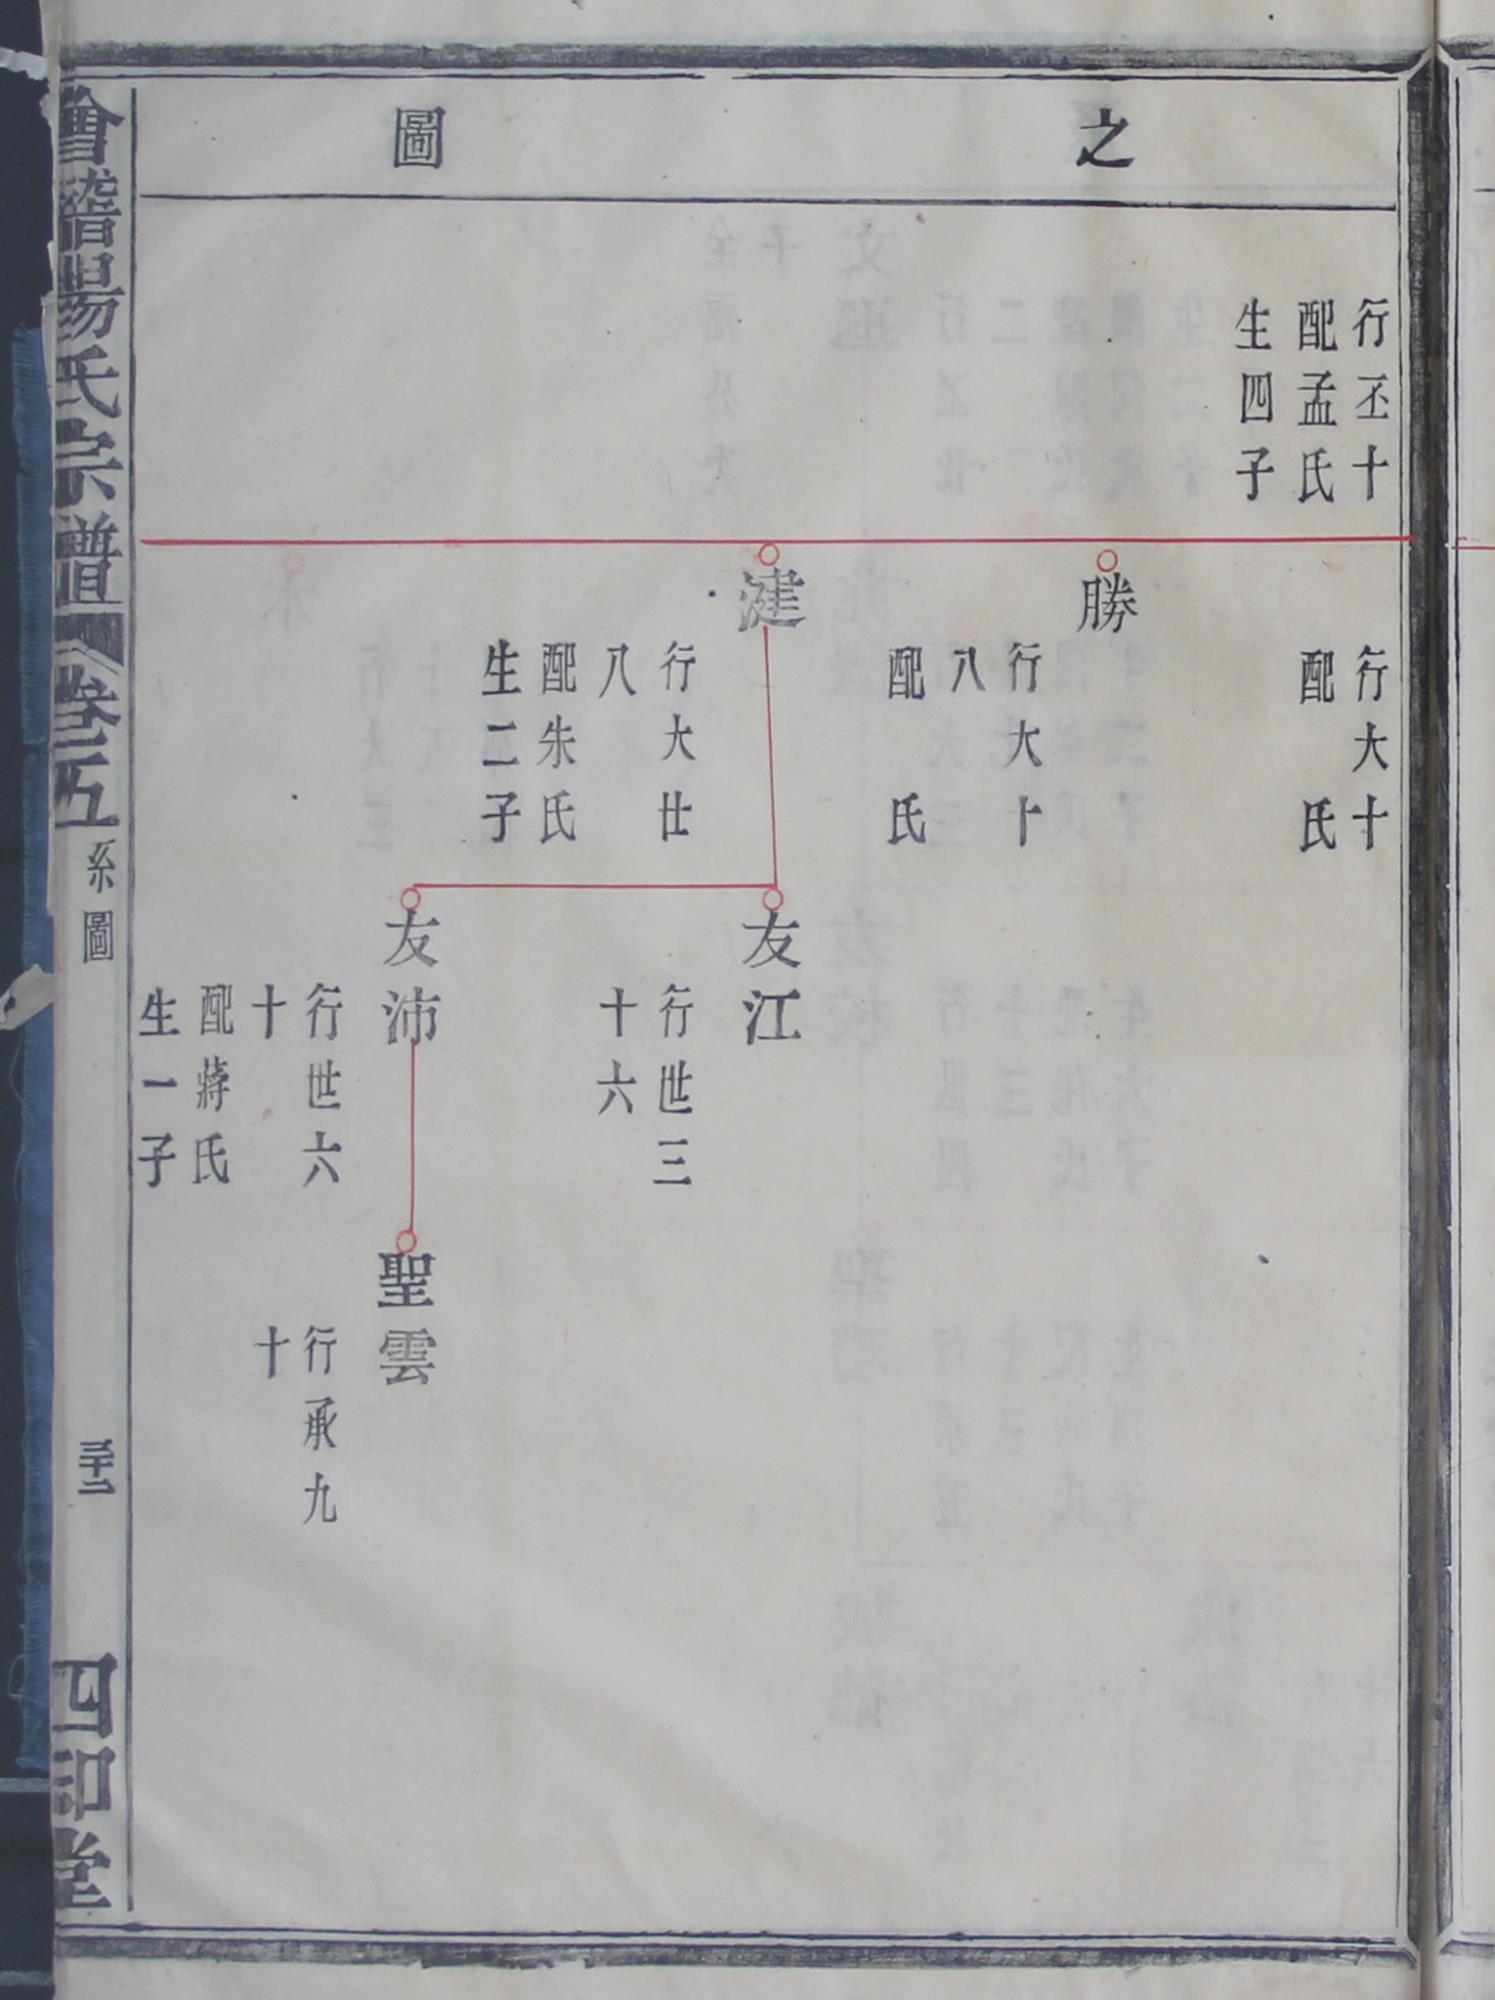 之圖
行丕十
配孟氏
生四子
行大十
配　氏
勝
行大十
八
配　氏
湕
行大廿
八
配朱氏
生二子
友江
行世三
十六
友沛
行世六
十
配蔣氏
生一子
聖雲
行承九
十
會稽楊氏宗譜 卷二五 系圖 三十二 四印堂